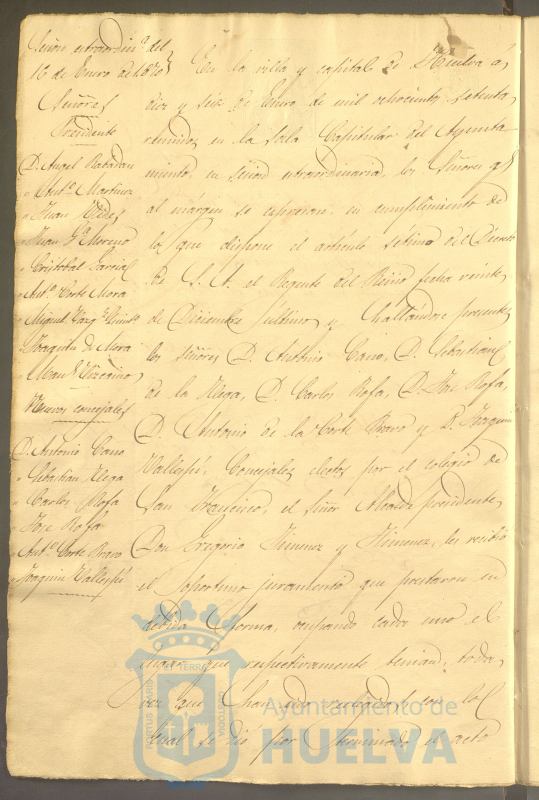 Sesion extraordin.ª del
16 de Enero de 1870
Señores
Presidente
D. Angel Rabadan
" Ant.º Martinez
" Juan
" Juan J.º Moreno
" Cristobal Garcia
" Ant.º Corte Mora
" Miguel Vazq.z
" Joaquin de Mora
" Man.l Vizcaino
Nuevos concejales
D. Antonio Cano
" Sebastian Vega
" Carlos Rofa
" José Rofa
" Ant.º Corte Bravo
" Joaquin Vallespí
En la villa y capital de Huelva á
diez y seis de Enero de mil ochocientos setenta,
reunidos en la Sala Capitular del Ayunta
miento, en sesion extraordinaria, los Señores q.e
al margen se espresan, en cumplimiento de
lo que dispone el artículo setimo del Decreto
de S. A. el Regente del Reino fecha veinte
de Diciembre último, y hallándose presentes
los señores D. Antonio Cano, D. Sebastian
de la Vega, D. Carlos Rofa, D. José Rofa,
D. Antonio de la Corte Bravo y D. Joaquin
Vallespí, Concejales electos por el colegio de
San Francisco, el señor Alcalde presidente,
Don Gregorio Jimenez y Jimenez, les recibió
el oportuno juramento que prestaron en
debida forma, ocupando cada uno el
lugar que respectivamente tenian, toda
vez que han sido reelegidos, con lo
cual se dió por terminado el acto
PORTUS MARIS
ET TERRÆ
CUSTODIA
Ayuntamiento de
HUELVA